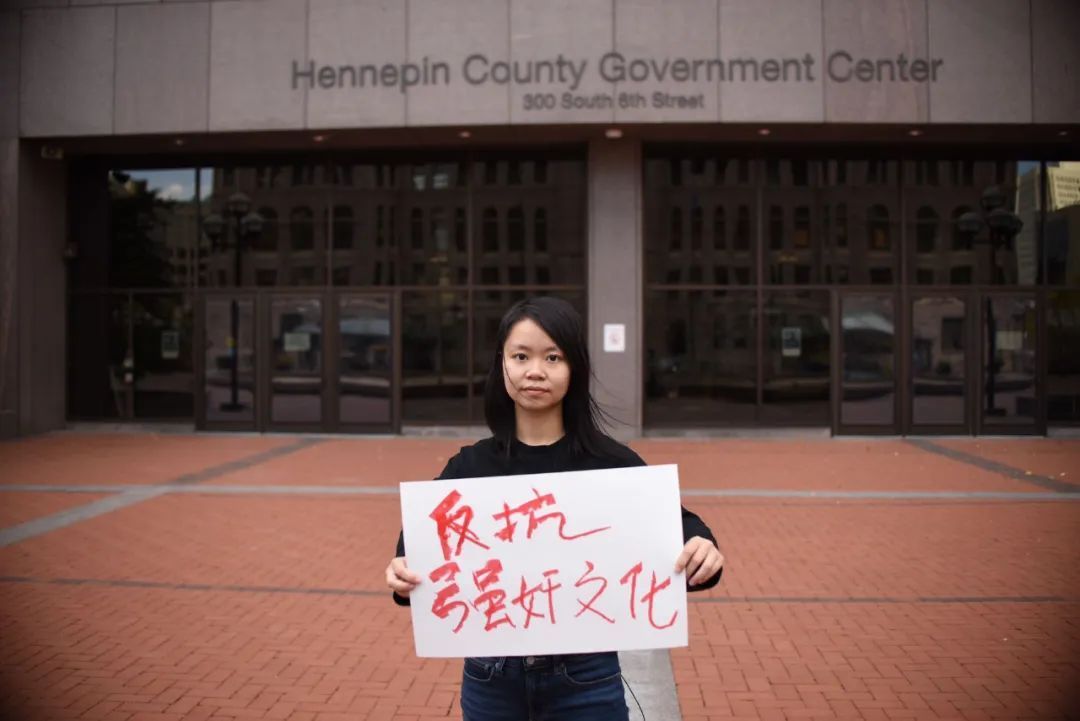 Hennepin County Government Center
300 South 6th Street
反抗
强奸文化